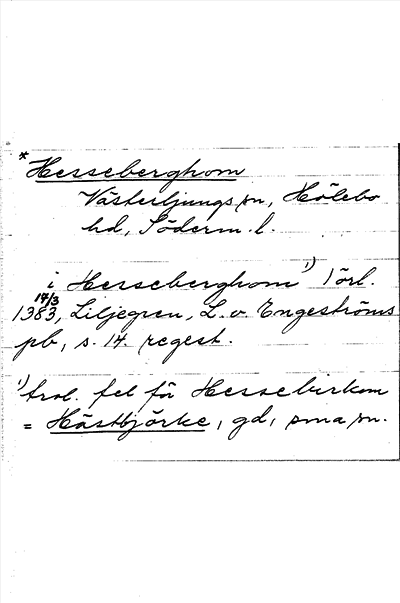 * Herseberghom
Västerljungs sn, Hölebo
hd, Söderm. l.
i Herseberghom 1) 1 örl.
14/3
1383, Liljegren, L. v. Engeströms
pb, s. 14. regest.
1) trol. fel för Hersebirkom
= Hästbjörke, gd, sma sn.